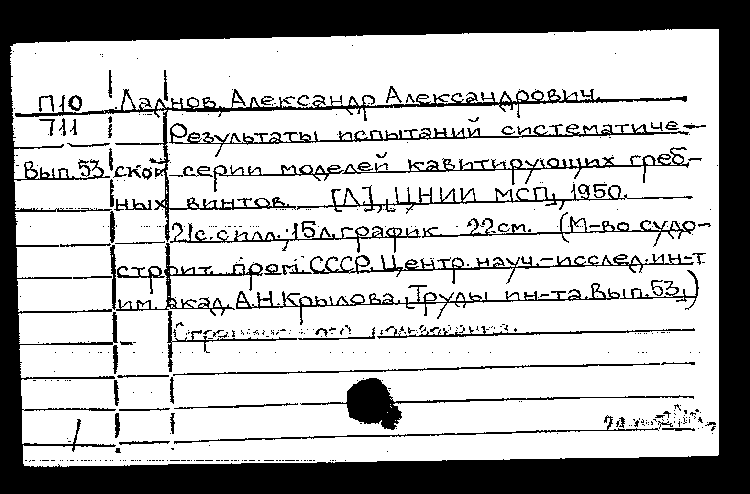 П10 Ладнов, Александр Александрович.
711 Результаты испытаний систематиче-
Вып. 53 ской серии моделей кавитирующих греб-
ных винтов. [Л], ЦНИИ МСП, 1950.
21с. с илл.; 15л. график 22см. (М-во судо-
строит. пром. СССР. Центр. науч.-исслед. ин-т
им. акад. А.Н. Крылова. [Труды ин-та. Вып. 53])
пользования.